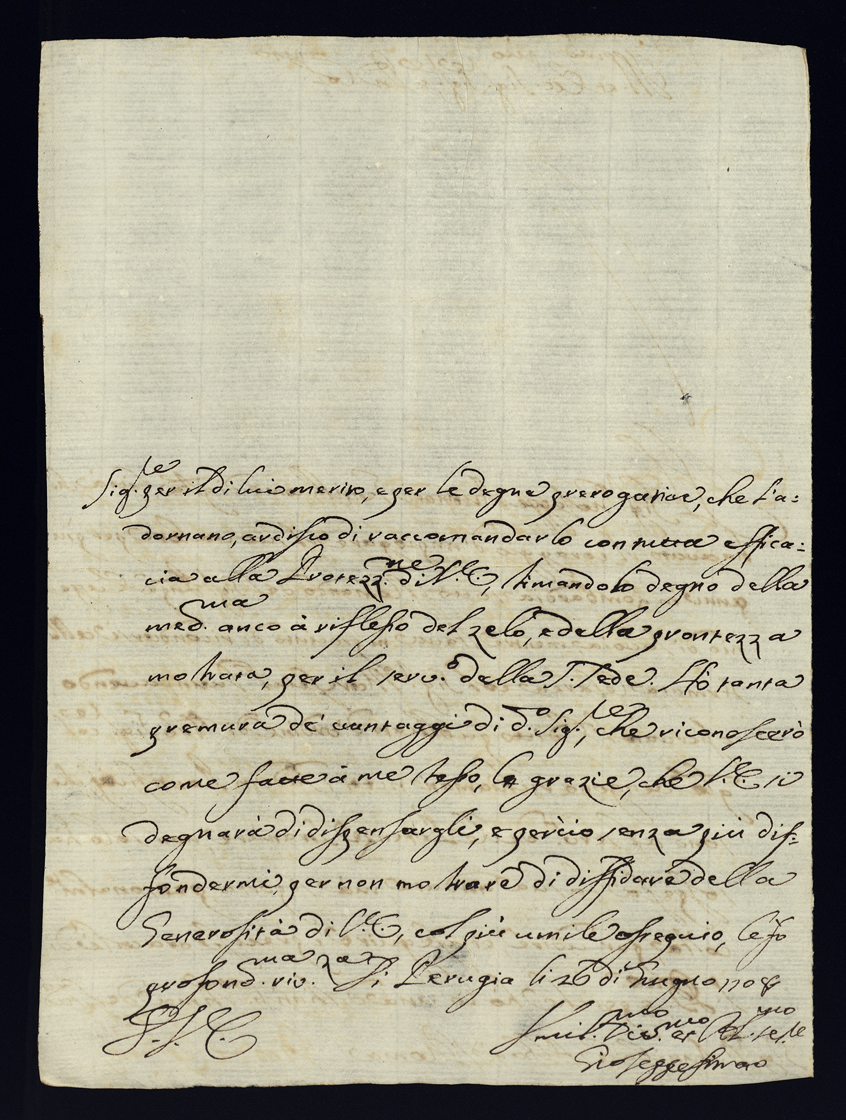 Sig.re per il di lui merito, e per le degne prerogative, che l'a:
dornano, ardisco di raccomandarlo con tutta effica:
cia alla Protezz.ne di V.E., stimandolo degno della
med.ma anco à riflesso del zelo, e della prontezza
mostrata, per il serv.o della S. Sede. Hò tanta
premura de' vantaggi di d.o Sig.re, che riconoscerò
come fatte à me stesso, le grazie, che V.E. si
degnarà di dispensargli, e perciò senza più dif:
fondermi, per non mostrare di diffidare della
Generosità di V.E., col più umile ossequio, le fò
profond.ma riv.za Di Perugia li 26 di Giugno 1708
Umil.mo Div.mo et Obl.mo Ser.re
Gioseppe